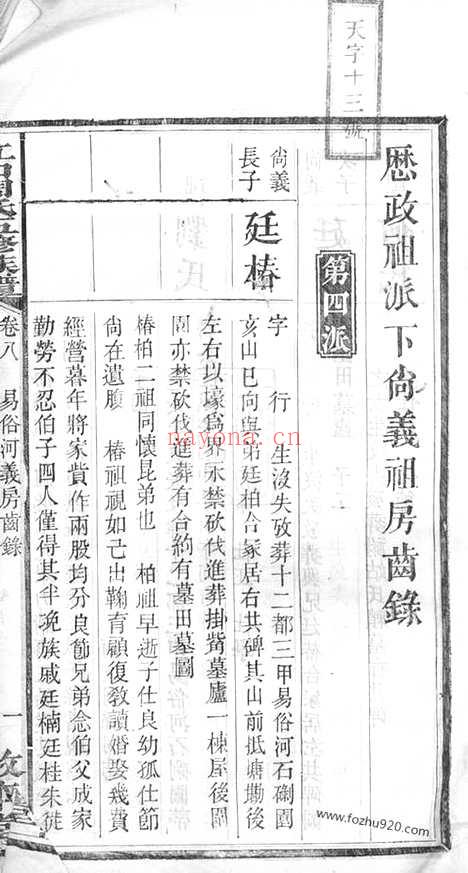 天字十三號
歷政祖派下尙義祖房齒錄
第四派
尙義
長子
廷椿
字 行 生沒失攷葬十二都三甲易俗河石磡園
亥山巳向與弟廷柏合冢居右共碑其山前抵塘墈後
左右以壕爲界永禁砍伐進葬掛觜墓廬一棟屋後園
圍亦禁砍伐進葬有合約有墓田墓圖
椿柏二祖同懷昆弟也 柏祖早逝子仕良幼孤仕節
尙在遺腹 椿祖視如己出鞠育顧復敎讀婚娶幾費
經營暮年將家貲作兩股均分良節兄弟念伯父成家
勤勞不忍伯子四人僅得其半浼族戚廷楠廷桂朱徒
修族譜
卷八 易俗河義房齒錄
一
nayona.cn
www.fozhu920.com